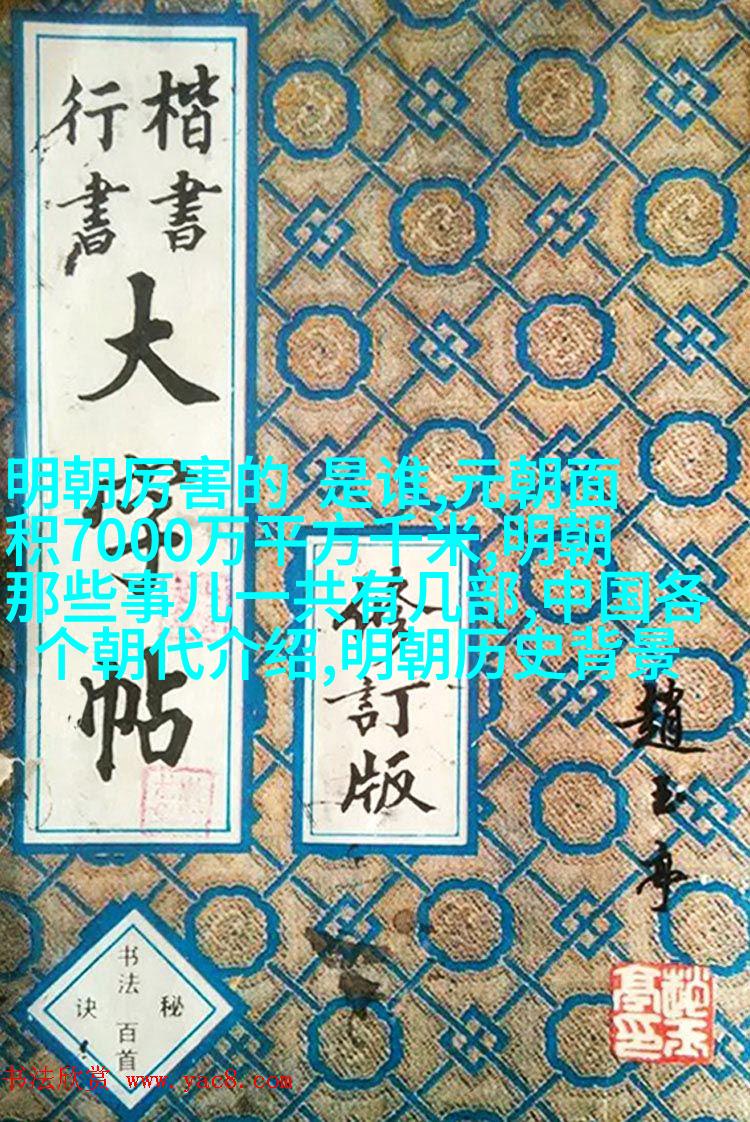 楷書
行書
大字帖
修訂版
趙玉亭
书法百首
秘诀
明朝厉害的 是谁,元朝面
积7000万平方千米,明朝
那些事儿一共有几部,中国各
个朝代介绍,明朝历史背景
书法欣赏 www.yac8.com